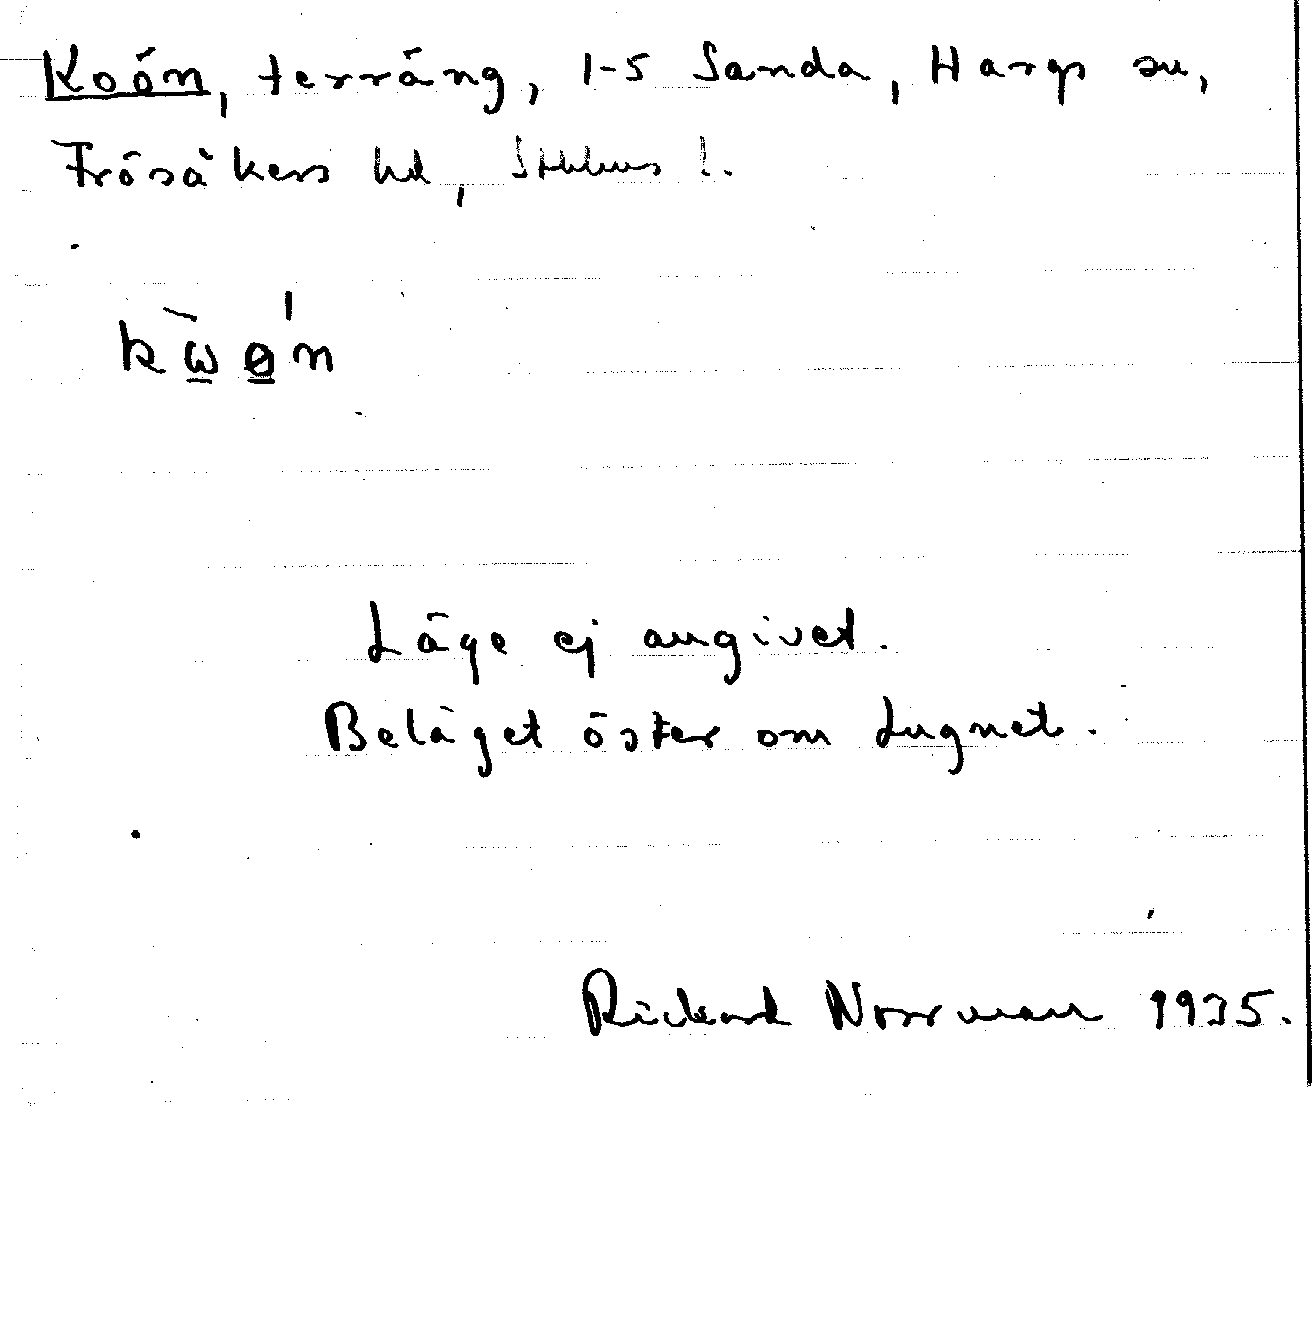 Koön, terräng, 1-5 Sanda, Hargs sn,
Frösåkers hd, Sthlms l.
kὼ̲ø̲'n
Läge ej angivet.
Beläget öster om Lugnet.
Rickard Norrman 1935.